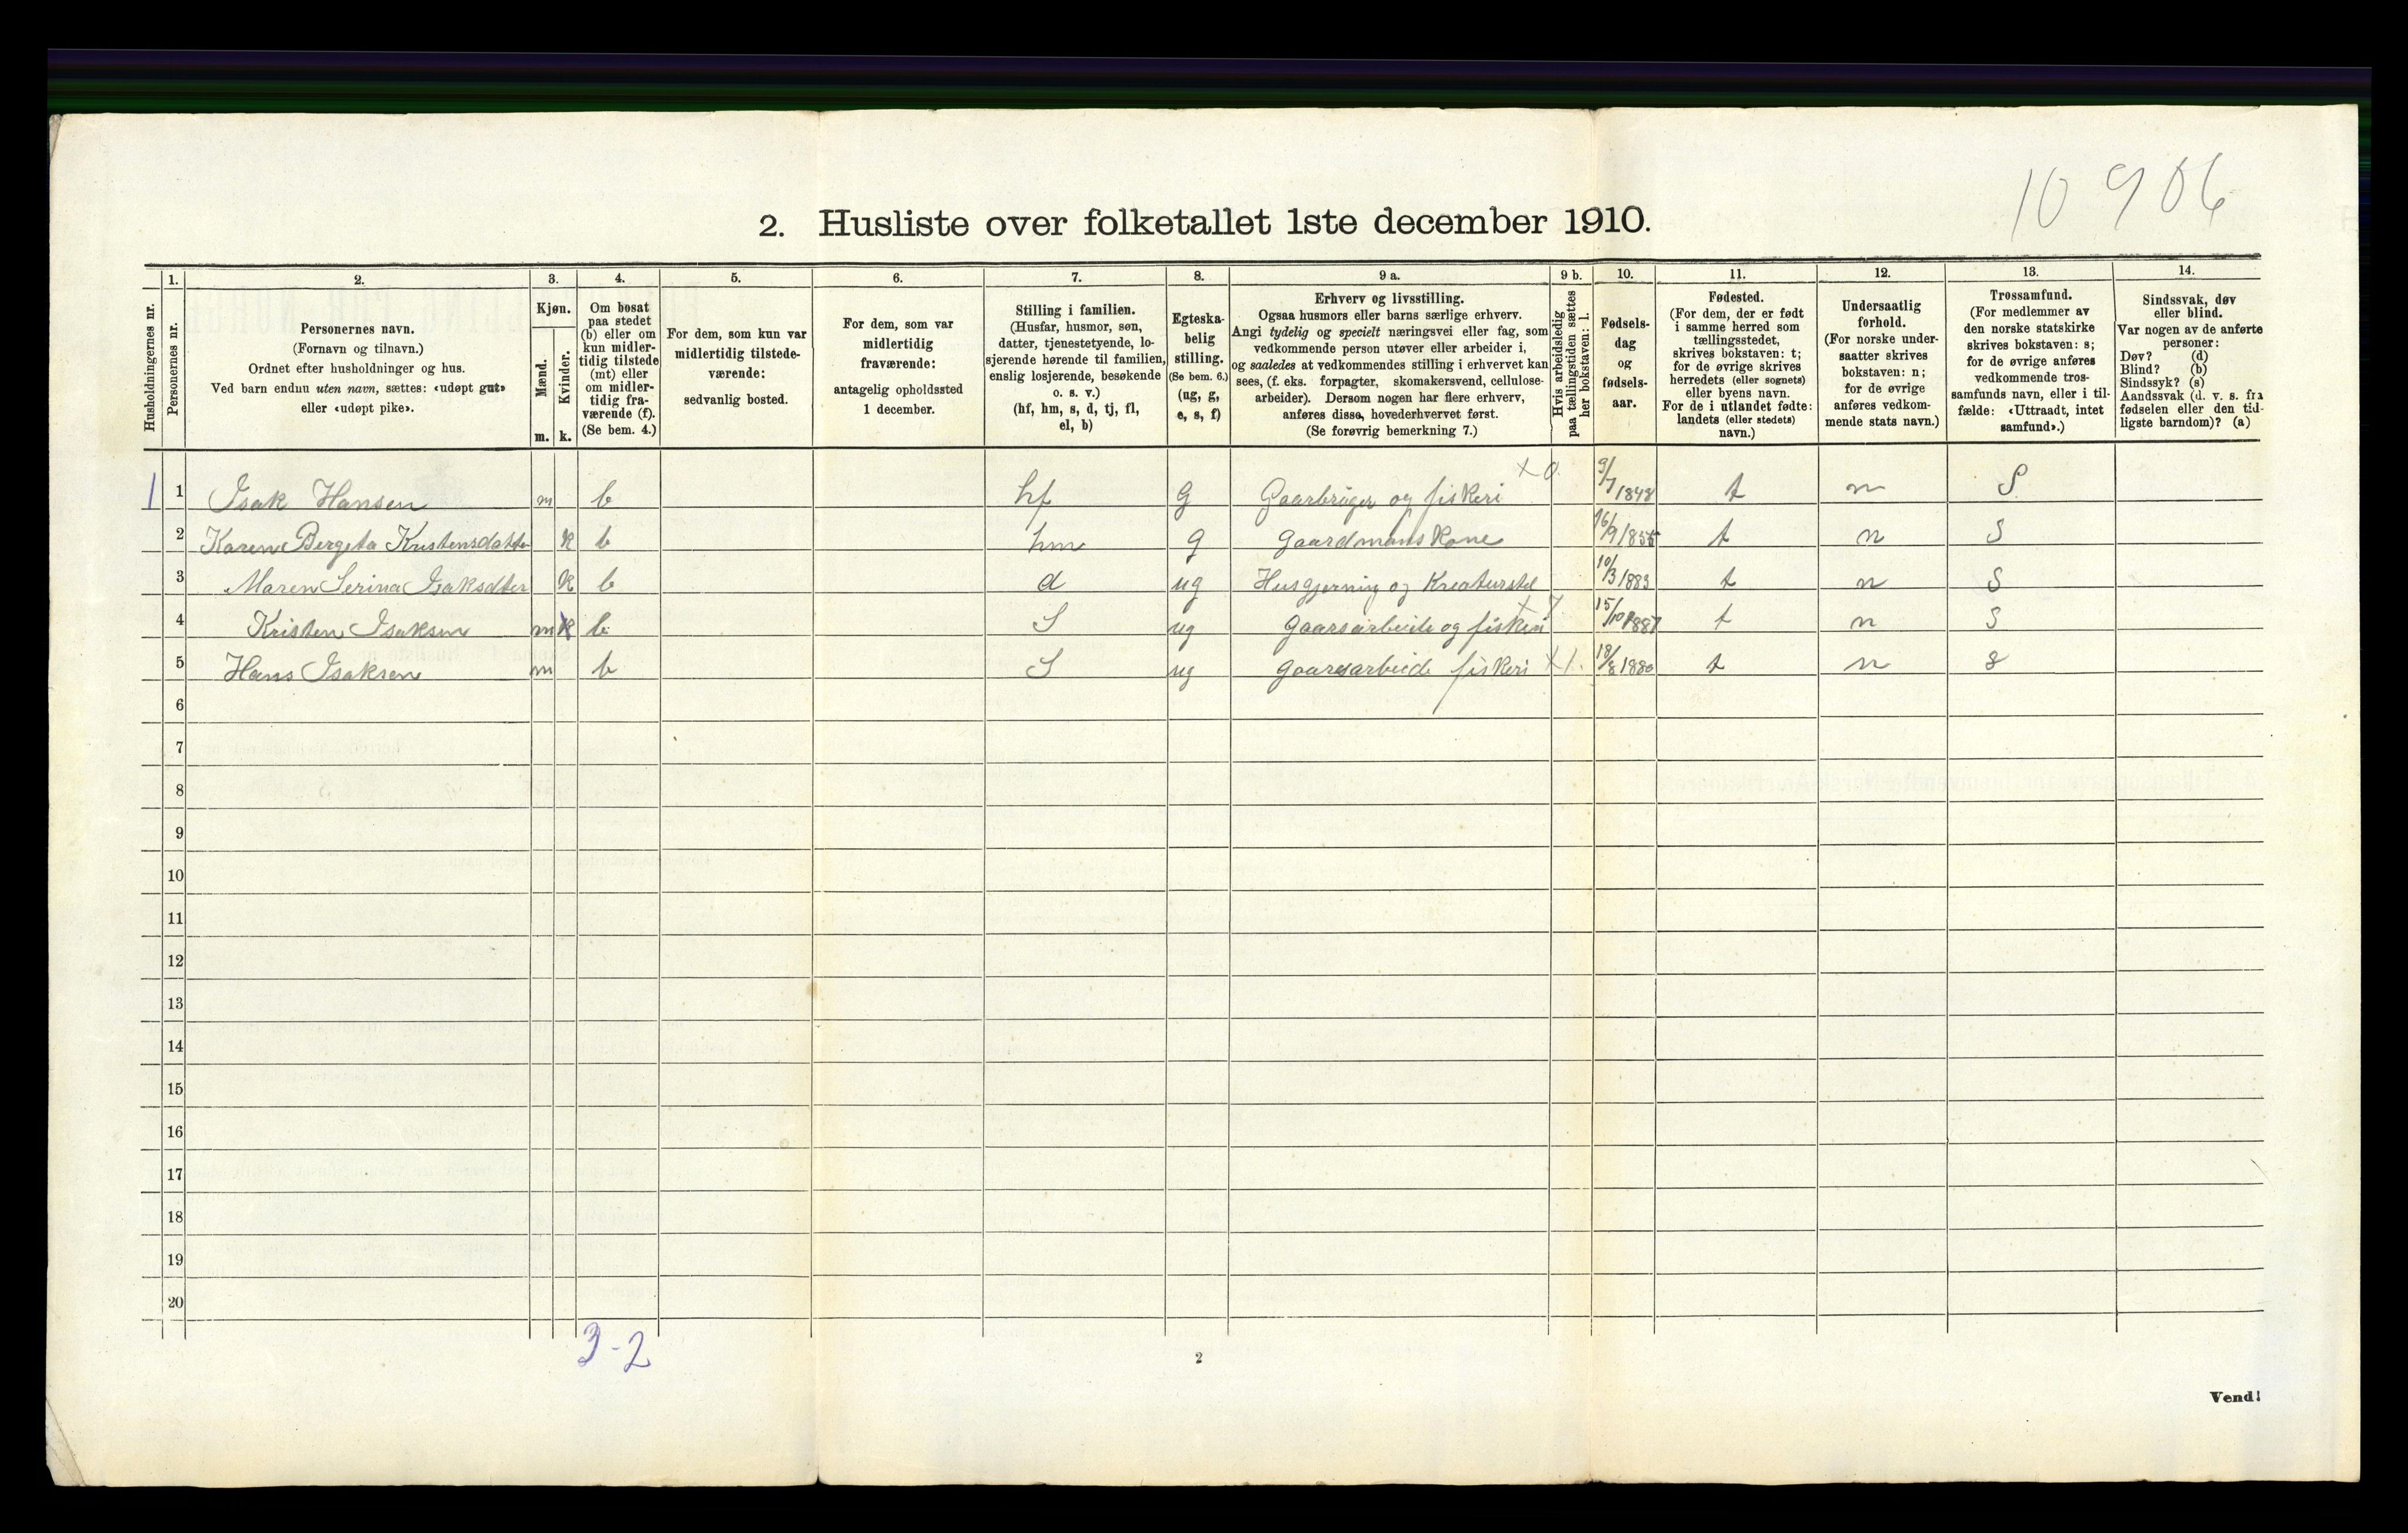 10 906
2. Husliste over folketallet 1ste december 1910.
Husholdningernes nr.
1.
Personernes nr.
2.
Personernes navn.
(Fornavn og tilnavn.)
Ordnet efter husholdninger og hus.
Ved barn endnu uten navn, sættes: «udøpt gut»
eller «udøpt pike».
3.
Kjøn.
Mænd.
m.
Kvinder.
k.
4.
Om bosat
paa stedet
(b) eller om
kun midler-
tidig tilstede
(mt) eller
om midler-
tidig fra-
værende (f).
(Se bem. 4.)
5.
For dem, som kun var
midlertidig tilstede-
værende:
sedvanlig bosted.
6.
For dem, som var
midlertidig
fraværende:
antagelig opholdssted
1 december.
7.
Stilling i familien.
(Husfar, husmor, søn,
datter, tjenestetyende, lo-
sjerende hørende til familien,
enslig losjerende, besøkende
o. s. v.)
(hf, hm, s, d, tj, fl,
el, b)
8.
Egteska-
belig
stilling.
(Se bem. 6.)
(ug, g,
e, s, f)
9 a.
Erhverv og livsstilling.
Ogsaa husmors eller barns særlige erhverv.
Angi tydelig og specielt næringsvei eller fag, som
vedkommende person utøver eller arbeider i,
og saaledes at vedkommendes stilling i erhvervet kan
sees, (f. eks. forpagter, skomakersvend, cellulose-
arbeider). Dersom nogen har flere erhverv,
anføres disse, hovederhvervet først.
(Se forøvrig bemerkning 7.)
9 b.
Hvis arbeidsledig
paa tællingstiden sættes
her bokstaven: l.
10.
Fødsels-
dag
og
fødsels-
aar.
11.
Fødested.
(For dem, der er født
i samme herred som
tællingsstedet,
skrives bokstaven: t;
for de øvrige skrives
herredets (eller sognets)
eller byens navn.
For de i utlandet fødte:
landets (eller stedets)
navn.)
12.
Undersaatlig
forhold.
(For norske under-
saatter skrives
bokstaven: n;
for de øvrige
anføres vedkom-
mende stats navn.)
13.
Trossamfund.
(For medlemmer av
den norske statskirke
skrives bokstaven: s;
for de øvrige anføres
vedkommende tros-
samfunds navn, eller i til-
fælde: «Uttraadt, intet
samfund».)
14.
Sindssvak, døv
eller blind.
Var nogen av de anførte
personer:
Døv? (d)
Blind? (b)
Sindssyk? (s)
Aandssvak (d. v. s. fra
fødselen eller den tid-
ligste barndom)? (a)
1 1 Isak Hansen m b hf g Gaarbruger og fiskeri x 0 9/7 1848 t n S
2 Karen Bergeta Kristensdatter k b hm g gaardmans kone 16/9 185 t n S
3 Maren Serina Isaksdtter k b d ug Husgjerning og Kreaturstel 10/3 1883 t n S
4 Kristen Isaksen m k b S ug gaarsarbeide og fiskeri x 7 15/10 1887 t n S
5 Hans Isaksen m b S ug gaarsarbeide fiskeri x 1. 18/8 1880 t n s
6
7
8
9
10
11
12
13
14
15
16
17
18
19
20
3-2
2
Vend!